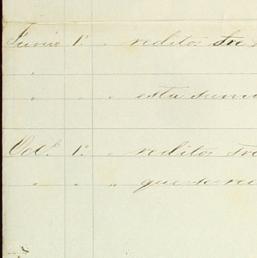 Junio 1º " reditos tre
" " " esta suma
Oct.e 1º " reditos tre
" " " que se re